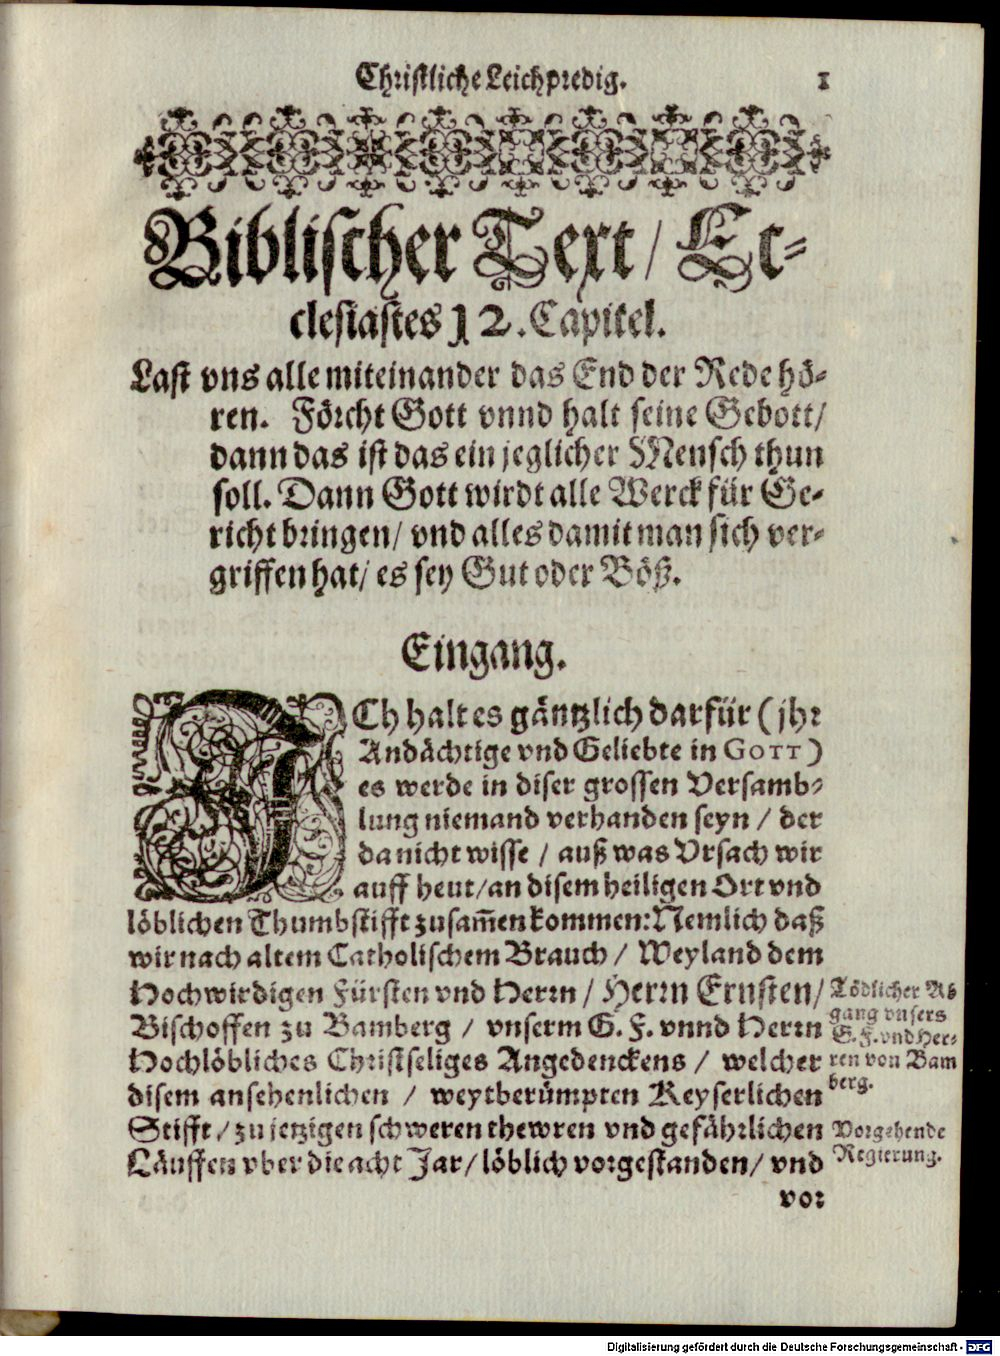 Christliche Leichpredig. 1
Biblischer Text / Ec-
clesiastes 12. Capitel.
Last vns alle miteinander das End der Rede hö-
ren. Förcht Gott vnnd halt seine Gebott/
dann das ist das ein jeglicher Mensch thun
soll. Dann Gott wirdt alle Werck für Ge-
richt bringen/ vnd alles damit man sich ver-
griffen hat/ es sey Gut oder Böß.
Eingang.
ICh halt es gäntzlich darfür (jhr
Andächtige vnd Geliebte in GOTT)
es werde in diser grossen Versamb-
lung niemand verhanden seyn / der
da nicht wisse / auß was Vrsach wir
auff heut/an disem heiligen Ort vnd
löblichen Thumbstifft zusam̃en kommen: Nemlich daß
wir nach altem Catholischem Brauch / Weyland dem
Hochwirdigen Fürsten vnd Herrn / Herrn Ernsten/
Bischoffen zu Bamberg / vnserm G. F. vnnd Herrn
Hochlöbliches Christseliges Angedenckens / welcher
disem ansehenlichen / weytberümpten Keyserlichen
Stifft / zu jetzigen schweren thewren vnd gefährlichen
Läuffen vber die acht Jar/ löblich vorgestanden/ vnd
vor
Tödlicher Ab
gang vnsers
G. F. vnd Her-
ren von Bam
berg.
Vorgehende
Regierung.
Digitalisierung gefördert durch die Deutsche Forschungsgemeinschaft - DFG